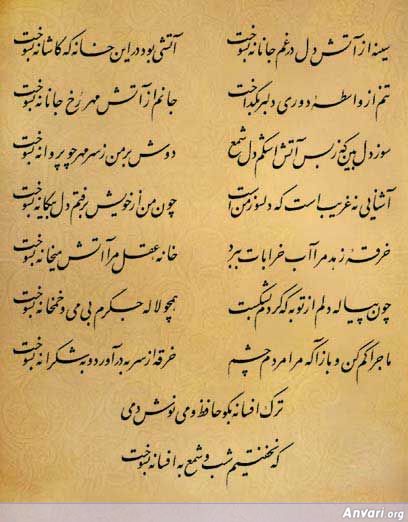 سینه از آتش دل در غم جانانه بسوخت آتشی بود در این خانه که کاشانه بسوخت
تنم از واسطهٔ دوری دلبر بگداخت جانم از آتش مهر رخ جانانه بسوخت
سوز دل بین که ز بس آتش اشکم دل شمع دوش بر من ز سر مهر چو پروانه بسوخت
آشنایی نه غریب است که دلسوز من است چون من از خویش برفتم دل بیگانه بسوخت
خرقهٔ زهد مرا آب خرابات ببرد خانه عقل مرا آتش میخانه بسوخت
چون پیاله دلم از توبه که کردم بشکست همچو لاله جگرم بی می و خمخانه بسوخت
ماجرا کم کن و بازآ که مرا مردم چشم خرقه از سر به درآورد و به شکرانه بسوخت
ترک افسانه بگو حافظ و می نوش دمی
که نخفتیم شب و شمع به افسانه بسوخت
Anvari.org